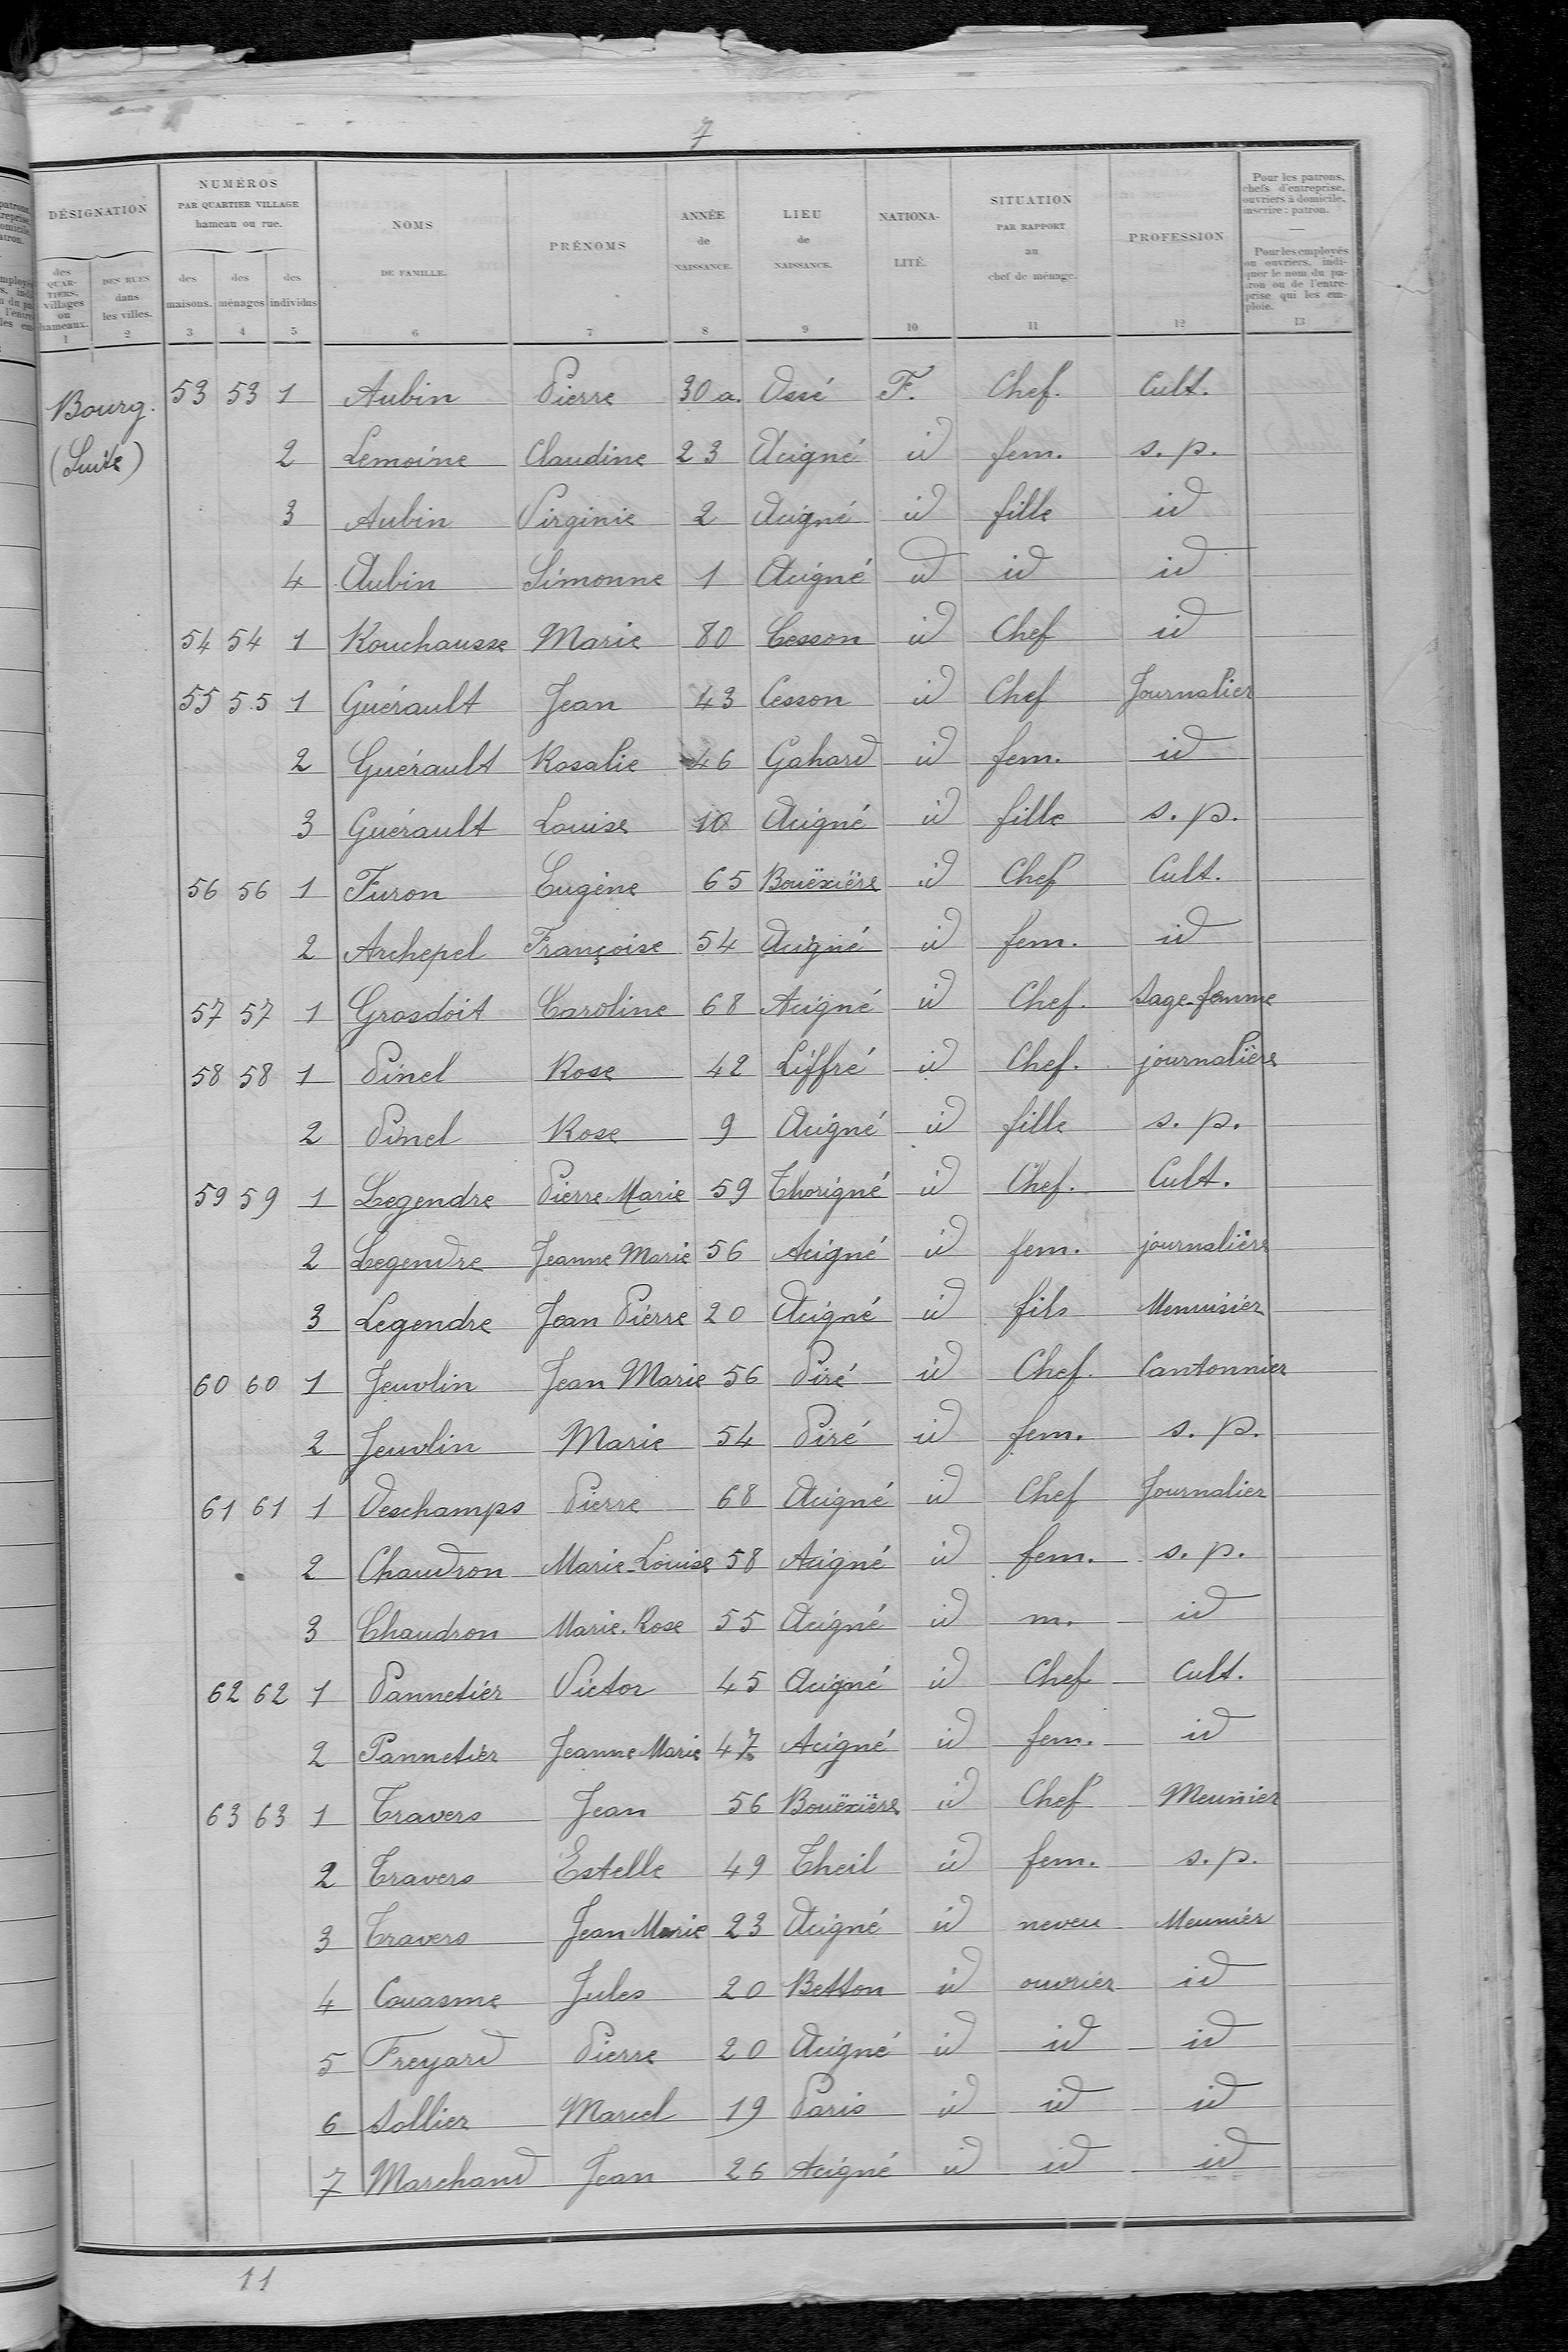 7
DÉSIGNATION
NUMÉROS
PAR QUARTIER VILLAGE
hameau ou rue.
NOMS
DE FAMILLE.
PRÉNOMS
ANNÉE
de
NAISSANCE.
LIEU
de
NAISSANCE.
NATIONA-
LITÉ.
SITUATION
PAR RAPPORT
au
chef de ménage.
PROFESSION
Pour les patrons,
chefs d'entreprise,
ouvriers à domicile,
inscrire : patron.
Pour les employés
ou ouvriers, indi-
quer le nom du pa-
tron ou de l'entre-
prise qui les em-
ploie.
des
QUAR-
TIERS,
villages
ou
hameaux.
DES RUES
dans
les villes.
des
maisons.
des
ménages
des
individus
1 2 3 4 5 6 7 8 9 10 11 12 13
Bourg.
(Suite)
53 53 1 Aubin Pierre 30 a. Ossé F. Chef. Cult.
2 Lemoine Claudine 23 Acigné id fem. s. p.
3 Aubin Virginie 2 Acigné id fille id
4 Aubin Simonne 1 Acigné id id id
54 54 1 Rouchausse Marie 80 Cesson id Chef id
55 55 1 Guérault Jean 43 Cesson id Chef Journalier
2 Guérault Rosalie 46 Gahard id fem. id
3 Guérault Louise 10 Acigné id fille s. p.
56 56 1 Furon Eugène 65 Bouëxière id Chef Cult.
2 Archepel Françoise 54 Acigné id fem. id
57 57 1 Grosdoit Caroline 68 Acigné id Chef. Sage-femme
58 58 1 Pinel Rose 42 Liffré id Chef. journalière
2 Pinel Rose 9 Acigné id fille s. p.
59 59 1 Legendre Pierre Marie 59 Thorigné id Chef. Cult.
2 Legendre Jeanne Marie 56 Acigné id fem. journalière
3 Legendre Jean Pierre 20 Acigné id fils Menuisier
60 60 1 Jeuvlin Jean Marie 56 Piré id Chef. Cantonnier
2 Jeuvlin Marie 54 Piré id fem. s. p.
61 61 1 Deschamps Pierre 68 Acigné id Chef Journalier
2 Chaudron Marie-Louise 58 Acigné id fem. s. p.
3 Chaudron Marie-Rose 55 Acigné id m. id
62 62 1 Pannetier Victor 45 Acigné id Chef Cult.
2 Pannetier Jeanne Marie 47 Acigné id fem. id
63 63 1 Travers Jean 56 Bouëxière id Chef Meunier
2 Travers Estelle 49 Theil id fem. s. p.
3 Travers Jean Marie 23 Acigné id neveu Meunier
4 Couasme Jules 20 Betton id ouvrier id
5 Freyard Pierre 20 Acigné id id id
6 Sollier Marcel 19 Paris id id id
7 Marchand Jean 26 Acigné id id id
11